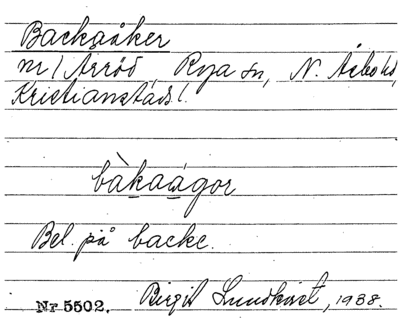 Backaåker
nr 1 Arröd, Rya sn, N. Åsbo hd,
Kristianstads l.
bàkaágor
Bel. på backe.
Nr 5502. Birgit Lundkvist, 1938.